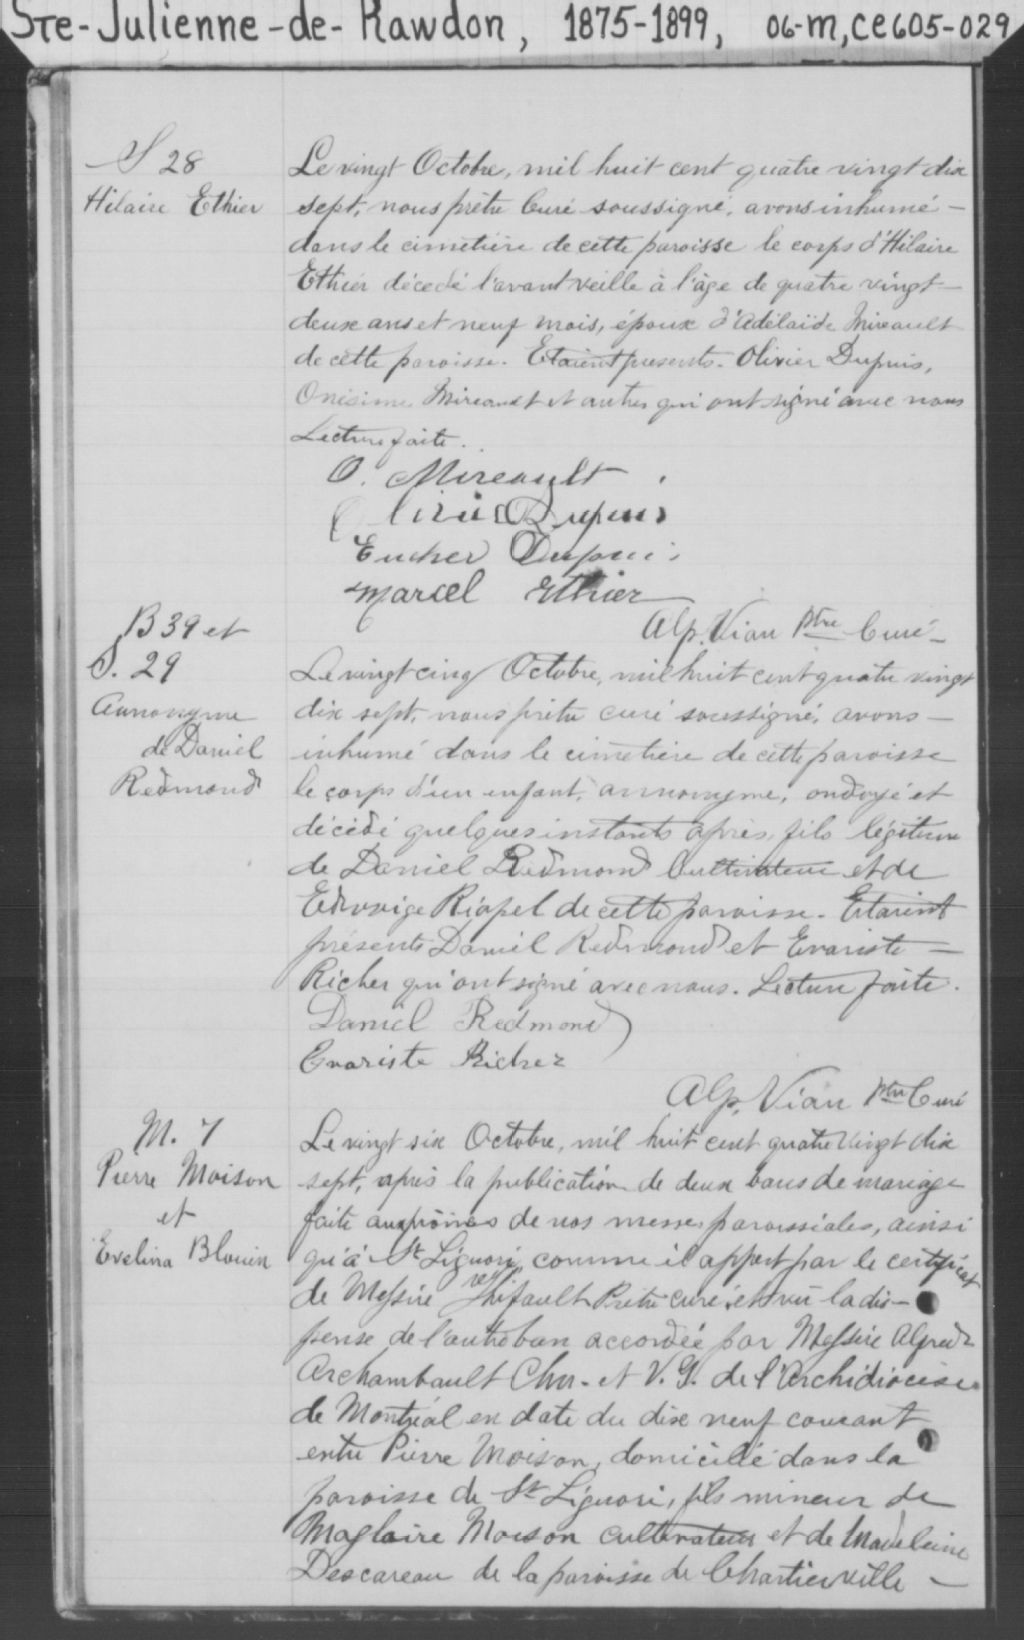 Ste-Julienne-de-Rawdon, 1875-1899, 06-M,CE605-029
S 28
Hilaire Ethier
Le vingt Octobre, mil huit cent quatre vingt dix
sept, nous prêtre Curé soussigné, avons inhumé –
dans le cimetière de cette paroisse le corps d'Hilaire
Ethier décedé l'avant veille à l'âge de quatre vingt –
deux ans et neuf mois, époux d'Adélaïde Mireault
de cette paroisse. Etaient présents. Olivier Dupuis,
Onésime Mireault et autres qui ont signé avec nous
Lecture faite.
O. Mireault
Olivier Dupuis
Eucher Dupuis
Marcel Ethier
Alp. Vian Ptre Curé –
B 39 et
S. 29
Annonyme
de Daniel
Redmond
Le vingt cinq Octobre, mil huit cent quatre vingt
dix sept, nous prêtre curé soussigné, avons –
inhumé dans le cimetière de cette paroisse
le corps d'un enfant, annonyme, ondoyé et
décédé quelques instants après, fils légitime
de Daniel Redmond Cultivateur et de
Edwige Riopel de cette paroisse. Etaient
présents Daniel Redmond et Evariste –
Richer qui ont signé avec nous. Lecture faite.
Daniel Redmond
Evariste Richer
Alp. Vian Ptre Curé
M. 7
Pierre Moison
et
Evelina Blouin
Le vingt six Octobre, mil huit cent quatre vingt dix
sept, après la publication de deux bans de mariage
faite aux prônes de nos messes paroissiales, ainsi
qu'à St Liguori, comme il appert par le certificat
de Messire Prêtre curé, et vu la dis-
pense de l'autre ban accordée par Messire Alfred
Archambault Chn. et V. G. de l'Archidiocèse
de Montréal en date du dix neuf courant
entre Pierre Moison, domicilié dans la
paroisse de St Liguori, fils mineur de
Magloire Moison cultivateur et de Madeleine
Descareau de la paroisse de Chartierville –